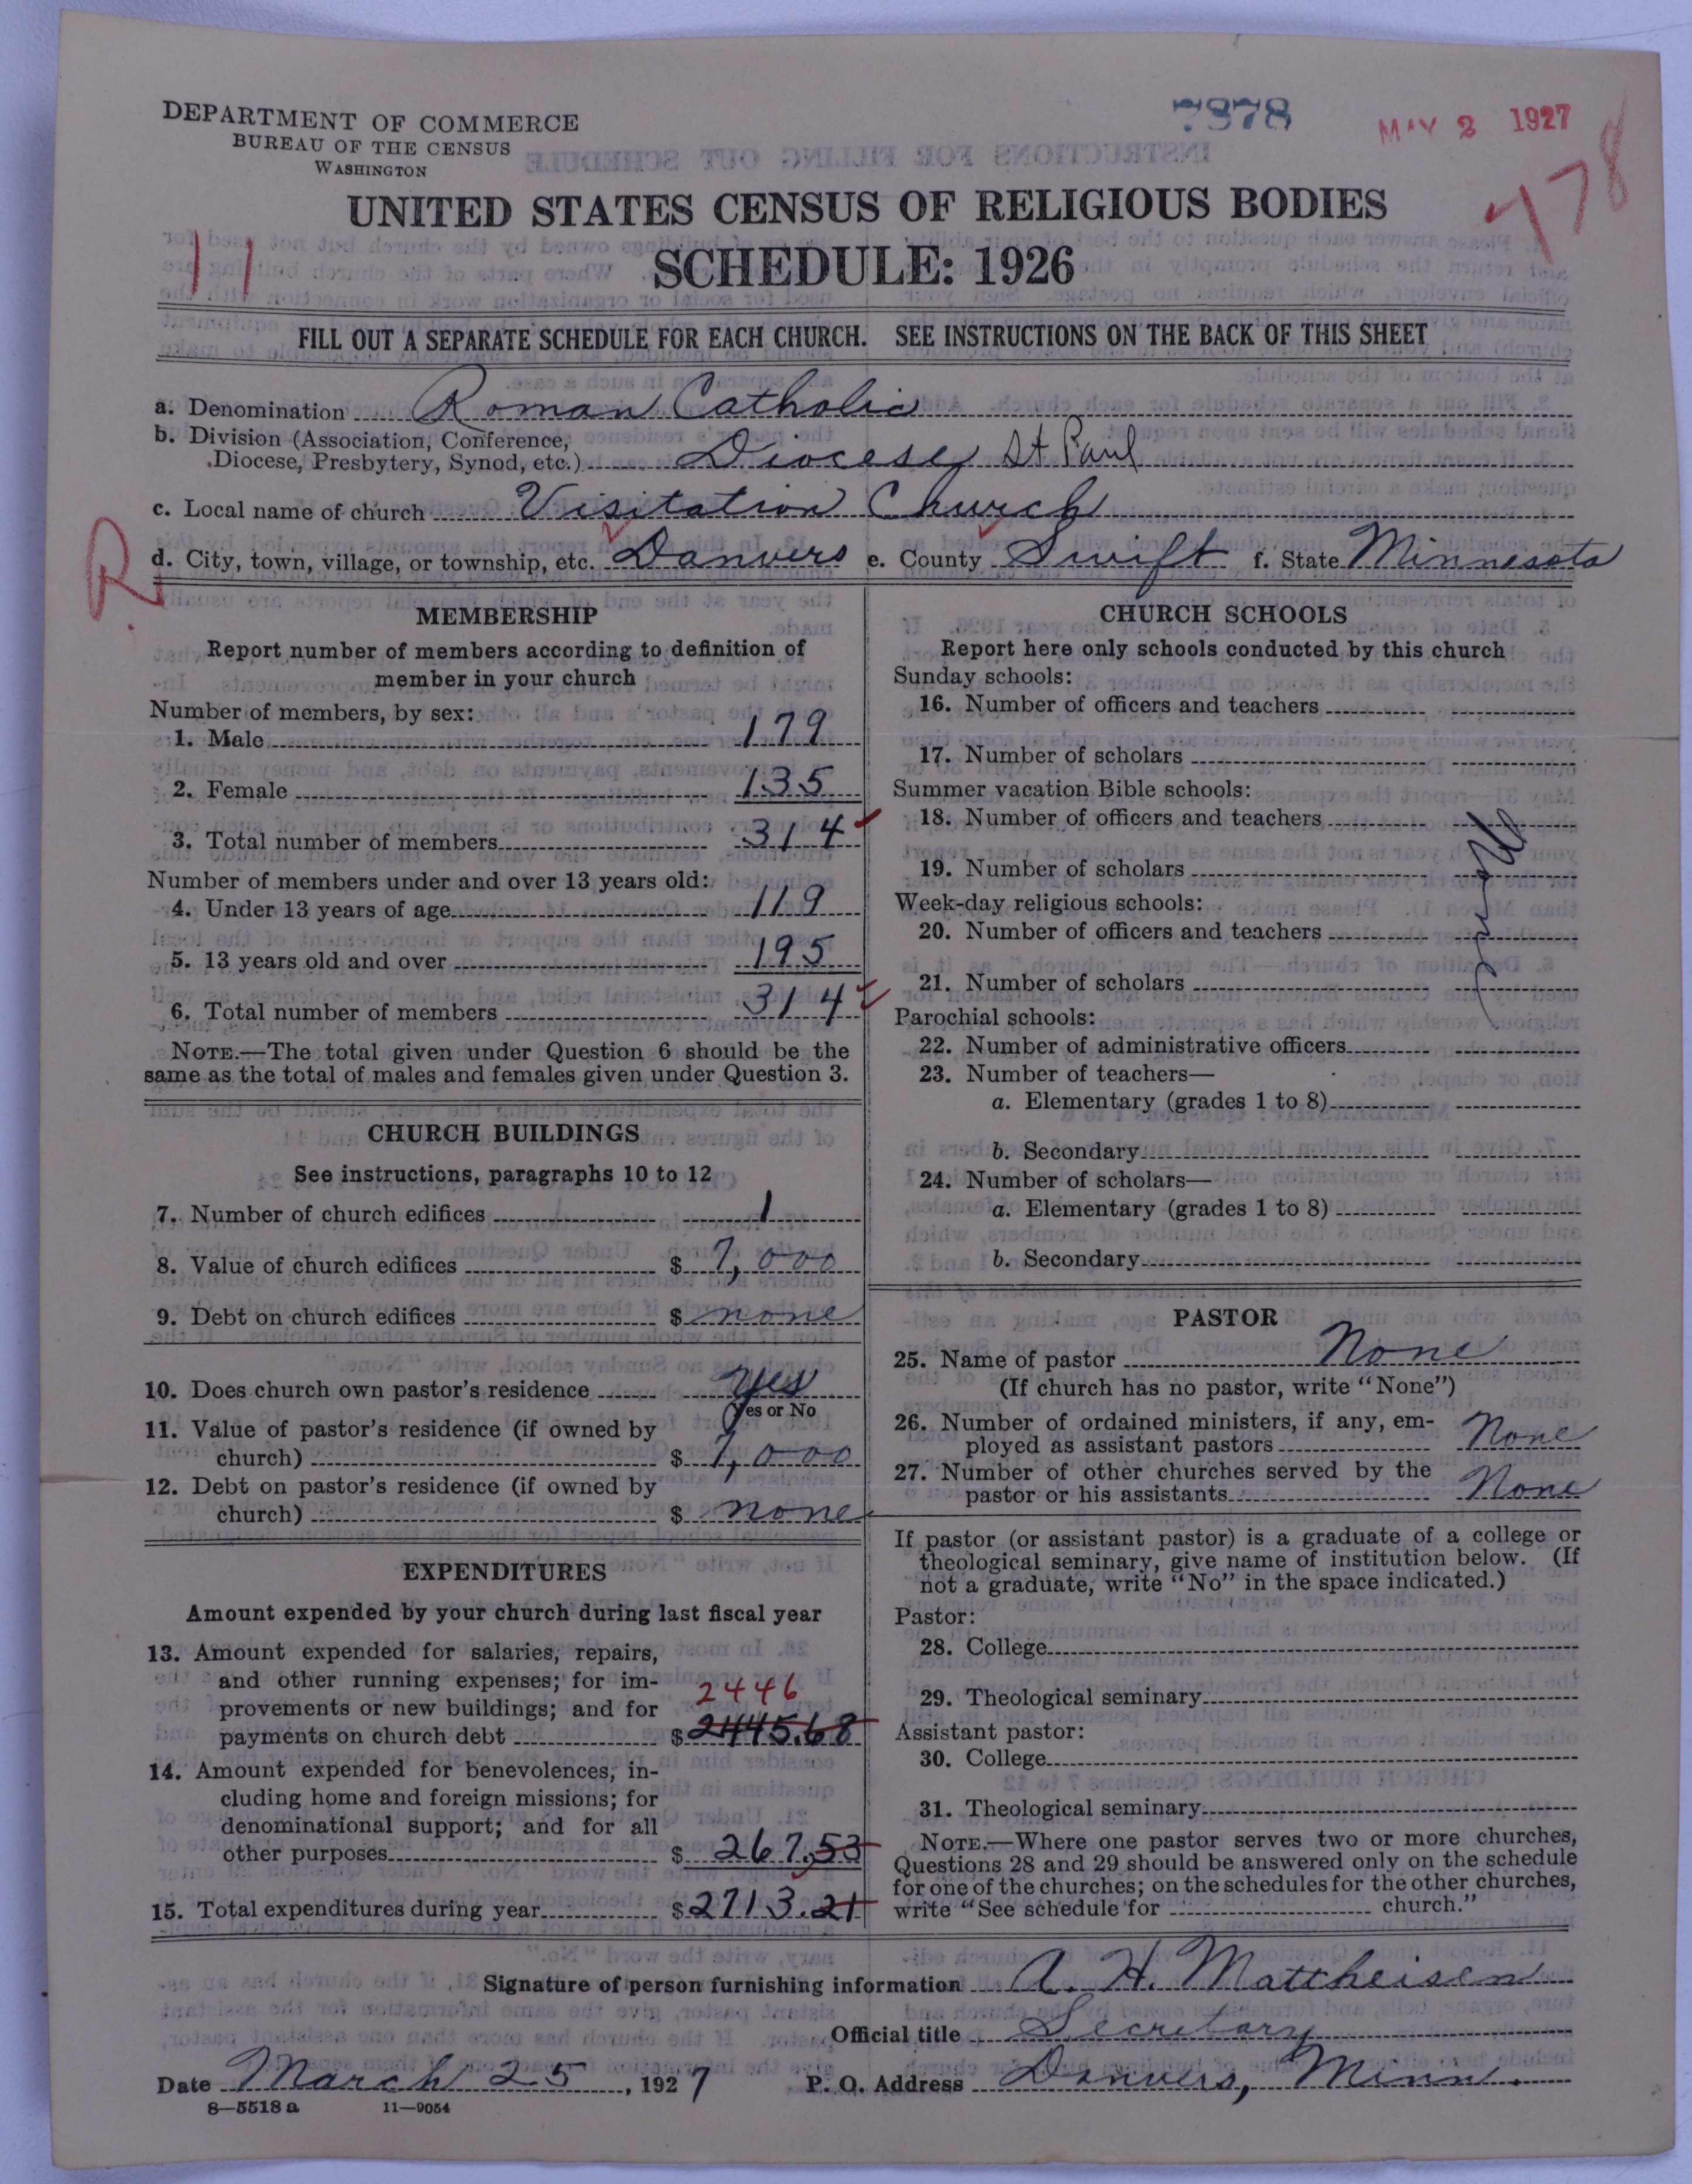 DEPARTMENT OF COMMERCE
BUREAU OF THE CENSUS
WASHINGTON
7378
MAY 2 1927
478
UNITED STATES CENSUS OF RELIGIOUS BODIES
11
SCHEDULE: 1926
FILL OUT A SEPARATE SCHEDULE FOR EACH CHURCH. SEE INSTRUCTIONS ON THE BACK OF THIS SHEET
a. Denomination Roman Catholic
b. Division (Association, Conference,
Diocese, Presbytery, Synod, etc.) Diocese St Paul
c. Local name of church Visitation Church
R
d. City, town, village, or township, etc. Danvers e. County Swift f. State Minnesota
MEMBERSHIP
Report number of members according to definition of
member in your church
Number of members, by sex:
1. Male 179
2. Female 135
3. Total number of members 314
Number of members under and over 13 years old:
4. Under 13 years of age 119
5. 13 years old and over 195
6. Total number of members 314
NOTE.—The total given under Question 6 should be the
same as the total of males and females given under Question 3.
CHURCH BUILDINGS
See instructions, paragraphs 10 to 12
7. Number of church edifices 1
8. Value of church edifices $ 7,000
9. Debt on church edifices $ none
10. Does church own pastor's residence yes
(Yes or No
11. Value of pastor's residence (if owned by
church) $ 7,000
12. Debt on pastor's residence (if owned by
church) $ none
EXPENDITURES
Amount expended by your church during last fiscal year
13. Amount expended for salaries, repairs,
and other running expenses; for im-
2446
provements or new buildings; and for
payments on church debt $ 2445.68
14. Amount expended for benevolences, in-
cluding home and foreign missions; for
denominational support; and for all
other purposes $ 267.53
15. Total expenditures during year $ 2713.21
CHURCH SCHOOLS
Report here only schools conducted by this church
Sunday schools:
16. Number of officers and teachers
17. Number of scholars
Summer vacation Bible schools:
18. Number of officers and teachers
19. Number of scholars
Week-day religious schools:
20. Number of officers and teachers
21. Number of scholars
Parochial schools:
22. Number of administrative officers
23. Number of teachers—
a. Elementary (grades 1 to 8)
b. Secondary
24. Number of scholars—
a. Elementary (grades 1 to 8)
b. Secondary
PASTOR
25. Name of pastor None
(If church has no pastor, write "None")
26. Number of ordained ministers, if any, em-
ployed as assistant pastors None
27. Number of other churches served by the
pastor or his assistants None
If pastor (or assistant pastor) is a graduate of a college or
theological seminary, give name of institution below. (If
not a graduate, write "No" in the space indicated.)
Pastor:
28. College
29. Theological seminary
Assistant pastor:
30. College
31. Theological seminary
NOTE.—Where one pastor serves two or more churches,
Questions 28 and 29 should be answered only on the schedule
for one of the churches; on the schedules for the other churches,
write "See schedule for church."
Signature of person furnishing information A. H. Mattheisen
Official title Secretary
Date March 25, 1927 P. O. Address Danvers, Minn.
8—5518 a 11—9054